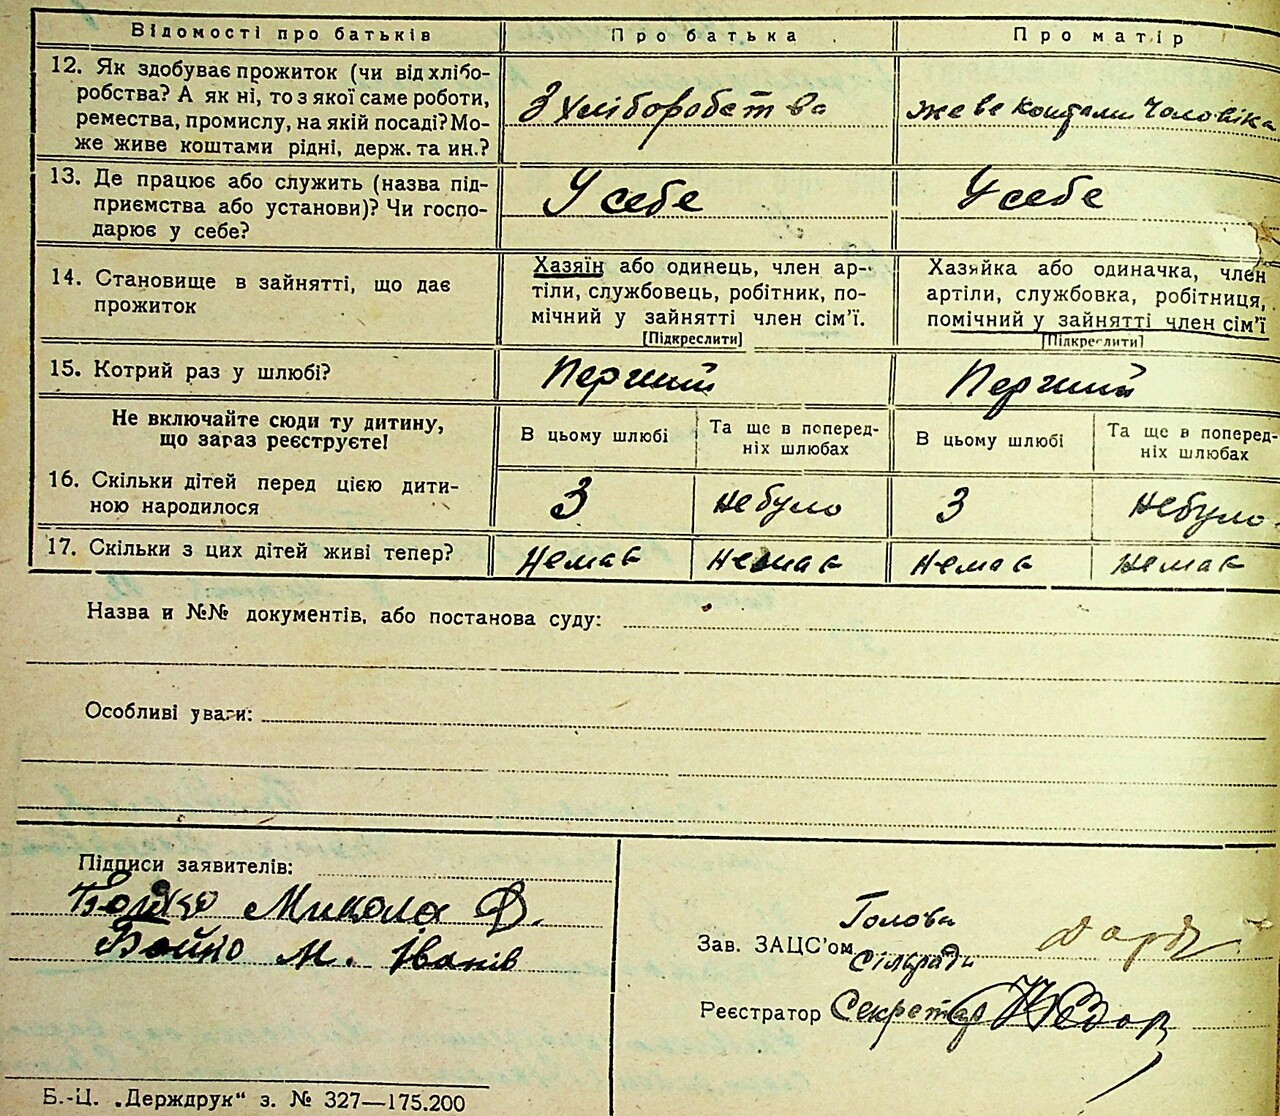 Відомості про батьків Про батька Про матір
12. Як здобуває прожиток (чи від хлібо-
робства? А як ні, то з якої саме роботи,
ремества, промислу, на якій посаді? Мо-
же живе коштами рідні, держ. та ин.?
З Хліборобства
живе коштами Чоловіка
13. Де працює або служить (назва під-
приємства або установи)? Чи госпо-
дарює у себе?
У себе
У себе
14. Становище в зайнятті, що дає
прожиток
Хазяїн або одинець, член ар-
тіли, службовець, робітник, по-
мічний у зайнятті член сім’ї.
[Підкреслити]
Хазяйка або одиначка, член
артіли, службовка, робітниця,
помічний у зайнятті член сім’ї
[Підкреслити]
15. Котрий раз у шлюбі?
Перший
Перший
Не включайте сюди ту дитину,
що зараз реєструєте!
В цьому шлюбі
Та ще в поперед-
ніх шлюбах
В цьому шлюбі
Та ще в поперед-
ніх шлюбах
16. Скільки дітей перед цією дити-
ною народилося
3 небуло 3 небуло
17. Скільки з цих дітей живі тепер?
Немає Немає Немає Немає
Назва и №№ документів, або постанова суду:
Особливі уваги:
Підписи заявителів:
Бойко Микола Д.
Бойко М. Іванів
Голова
Зав. ЗАЦС’ом
Сільради
Реєстратор Секретар
Б.-Ц. „Держдрук“ з. № 327—175.200